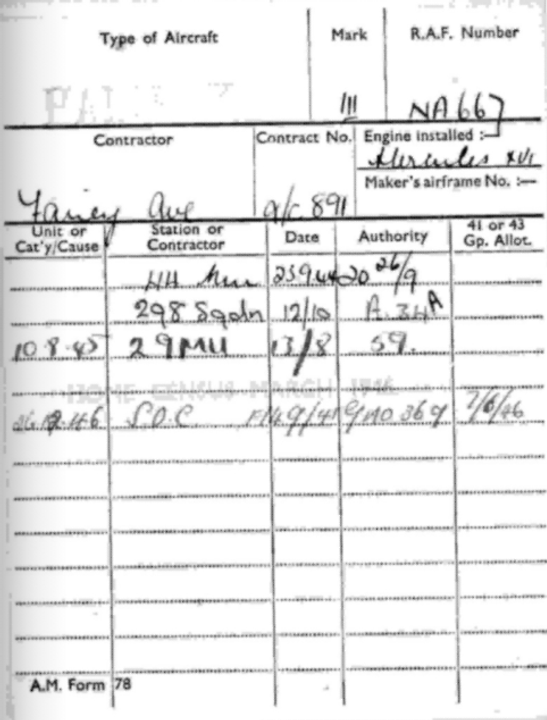 Type of Aircraft Mark R.A.F. Number
III NA667
Contractor Contract No. Engine installed :—
Hercules XVI
Maker's airframe No. :—
Fairey Ave a/c 891
Unit or Cat'y/Cause Station or Contractor Date Authority 41 or 43 Gp. Allot.
23944 20 26/9
298 Sqdn 12/10 A. 34A
10.8.45 29MU 13/8 59.
HOME CENSUS MARCH 1946
S.O.C 369 7/6/46
A.M. Form 78